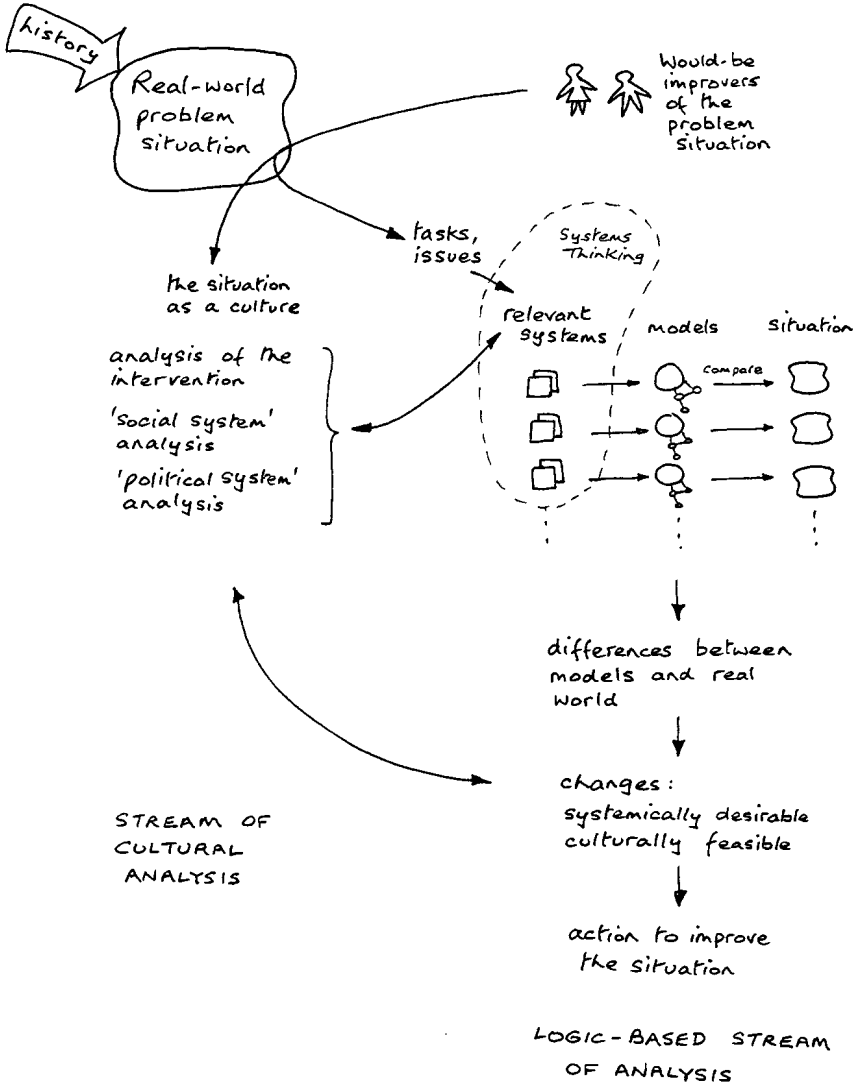 history
Real-world
problem
situation
Would-be
improvers
of the
problem
situation
tasks,
issues
Systems
Thinking
the situation
as a culture
relevant
systems
models
situation
analysis of the
intervention
compare
'social system'
analysis
'political system'
analysis
differences between
models and real
world
changes:
systemically desirable
culturally feasible
STREAM OF
CULTURAL
ANALYSIS
action to improve
the situation
LOGIC-BASED STREAM
OF ANALYSIS